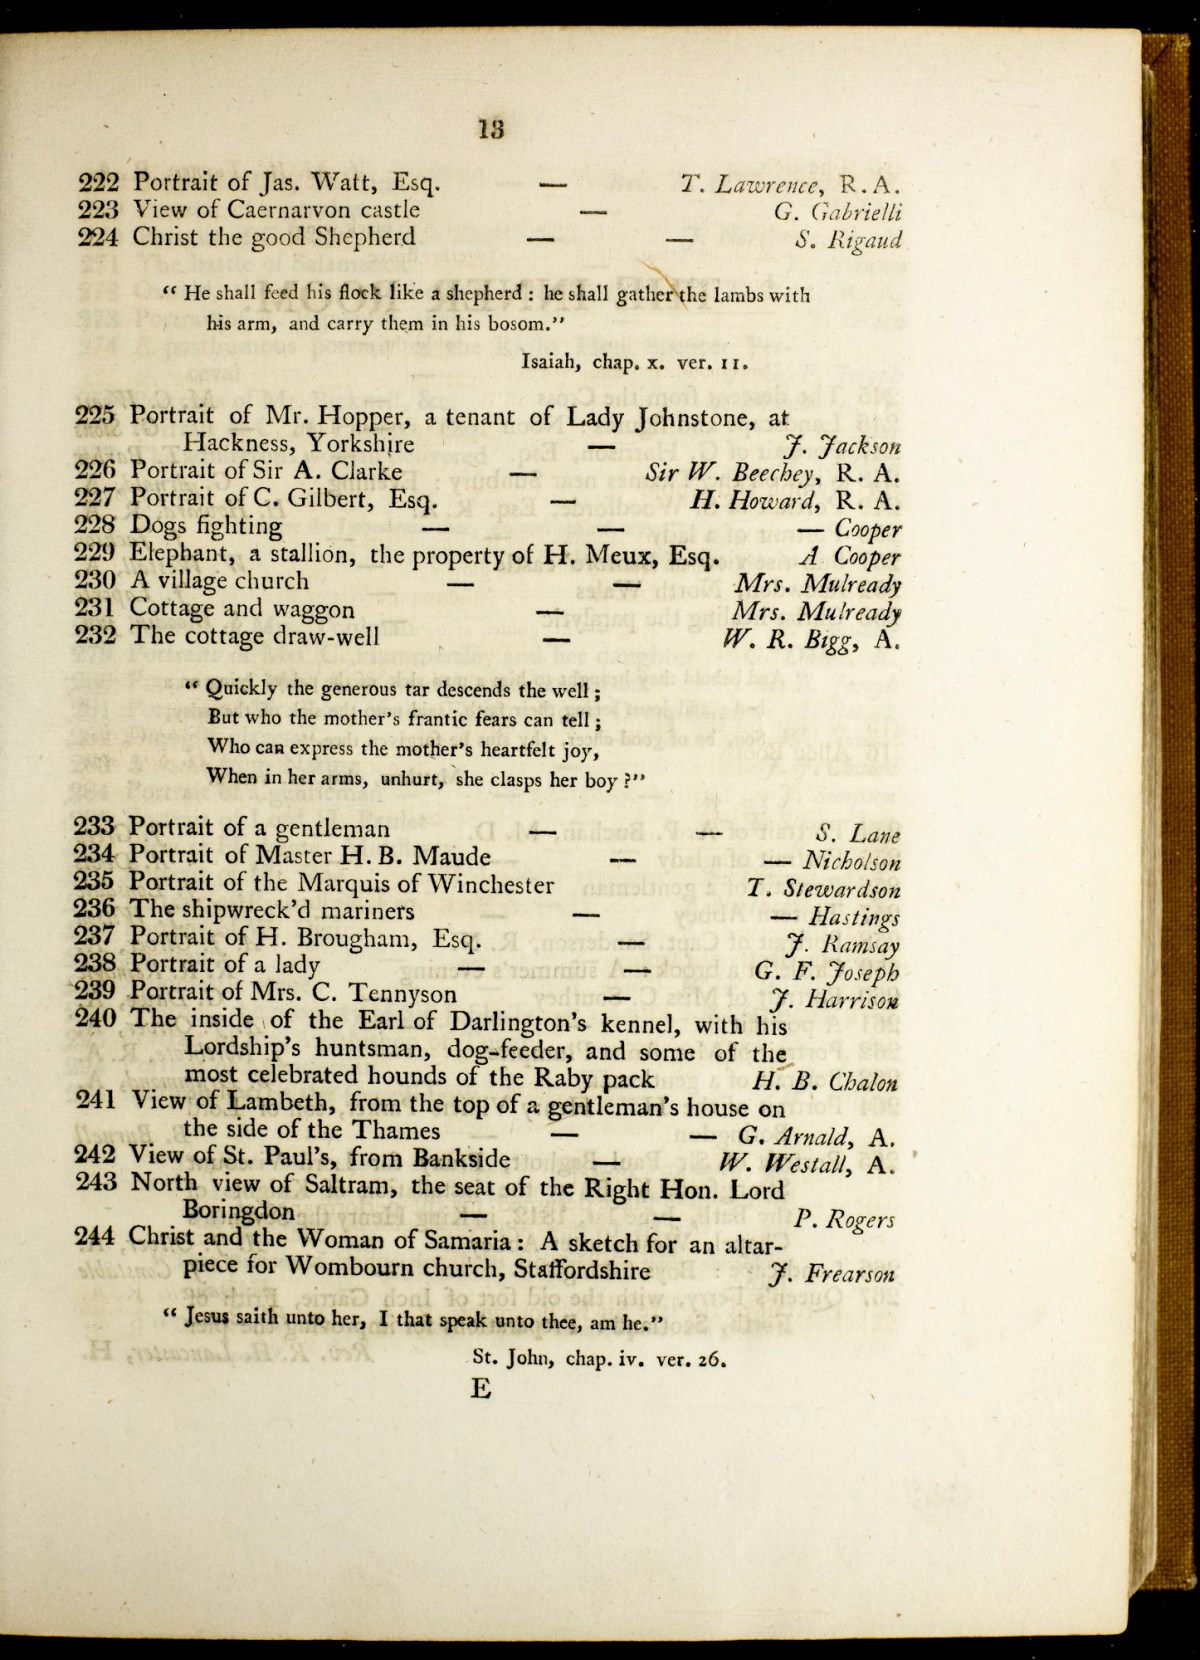 13
222 Portrait of Jas. Watt, Esq. — T. Lawrence, R.A.
223 View of Caernarvon castle — G. Gabrielli
224 Christ the good Shepherd — — S. Rigaud
“ He shall feed his flock like a shepherd : he shall gather the lambs with
his arm, and carry them in his bosom.”
Isaiah, chap. x. ver. 11.
225 Portrait of Mr. Hopper, a tenant of Lady Johnstone, at
Hackness, Yorkshire — J. Jackson
226 Portrait of Sir A. Clarke — Sir W. Beechey, R. A.
227 Portrait of C. Gilbert, Esq. — H. Howard, R. A.
228 Dogs fighting — — — Cooper
229 Elephant, a stallion, the property of H. Meux, Esq. A Cooper
230 A village church — — Mrs. Mulready
231 Cottage and waggon — Mrs. Mulready
232 The cottage draw-well — W. R. Bigg, A.
“ Quickly the generous tar descends the well ;
But who the mother’s frantic fears can tell ;
Who can express the mother’s heartfelt joy,
When in her arms, unhurt, she clasps her boy ?”
233 Portrait of a gentleman — — S. Lane
234 Portrait of Master H. B. Maude — — Nicholson
235 Portrait of the Marquis of Winchester T. Stewardson
236 The shipwreck’d mariners — — Hastings
237 Portrait of H. Brougham, Esq. — J. Ramsay
238 Portrait of a lady — — G. F. Joseph
239 Portrait of Mrs. C. Tennyson — J. Harrison
240 The inside of the Earl of Darlington’s kennel, with his
Lordship’s huntsman, dog-feeder, and some of the
most celebrated hounds of the Raby pack H. B. Chalon
241 View of Lambeth, from the top of a gentleman’s house on
the side of the Thames — — G. Arnald, A.
242 View of St. Paul’s, from Bankside — W. Westall, A.
243 North view of Saltram, the seat of the Right Hon. Lord
Boringdon — — P. Rogers
244 Christ and the Woman of Samaria : A sketch for an altar-
piece for Wombourn church, Staffordshire J. Frearson
“ Jesus saith unto her, I that speak unto thee, am he.”
St. John, chap. iv. ver. 26.
E